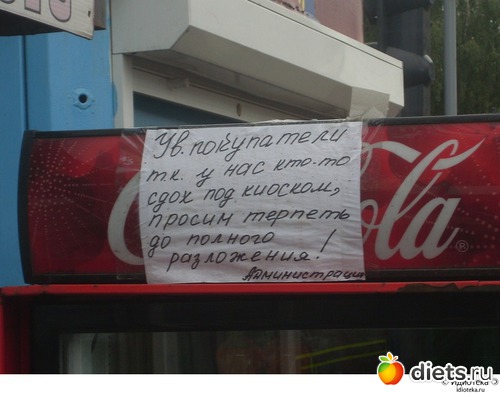 Ув. покупатели
т.к. у нас кто-то
сдох под киоском,
просим терпеть
до полного
разложения!
Администрация
Cola
diets.ru
© Идиотека
idioteka.ru